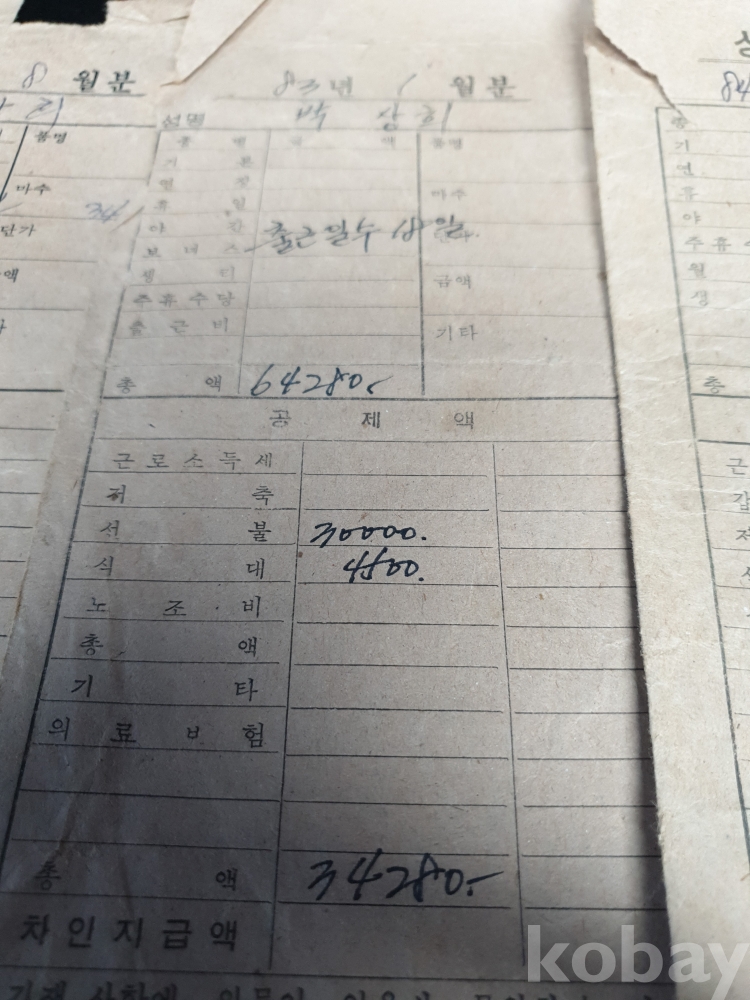 8 월분
83년 1 월분
84
성명 박 상 희
품명
종 별 금 액 품명
기 본
연 장
마수
휴 일
마수
야 간
출근일수 18일
단가
보 너 스
생 리
금액
주 휴 수 당
출 근 비
기타
총 액 64280.
공 제 액
근 로 소 득 세
저 축
선 불 30000.
식 대 4500.
노 조 비
총 액
기 타
의 료 보 험
총 액 34280.
차 인 지 급 액
kobay